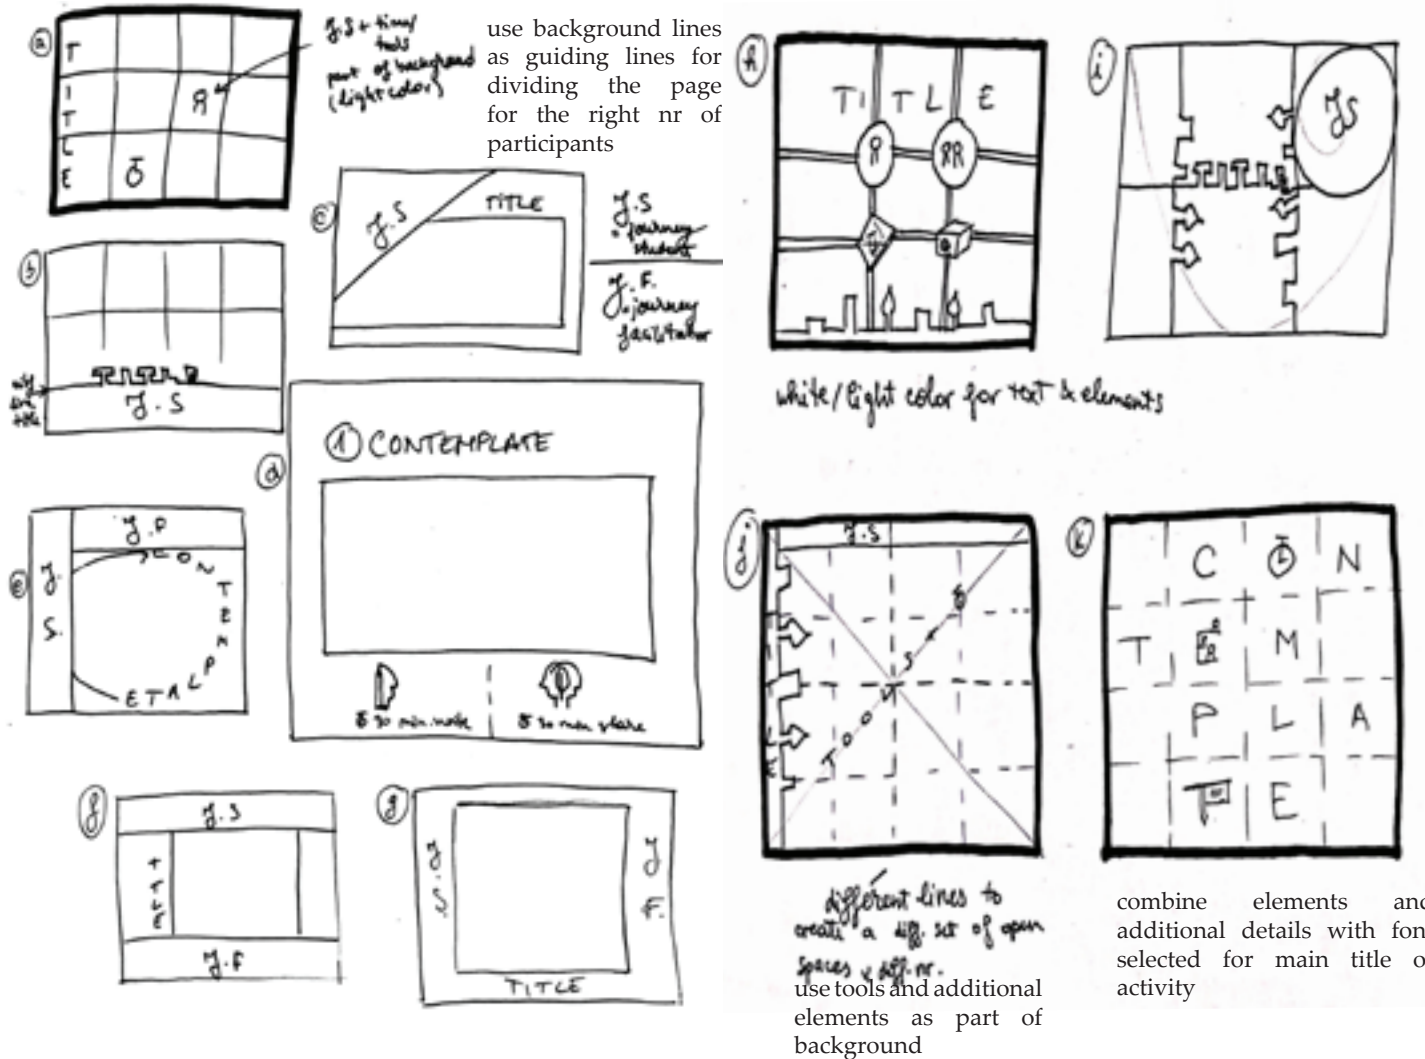 a
T
I
T
L
E
J.S + time/
tools
part of background
(light color)
use background lines
as guiding lines for
dividing the page
for the right nr of
participants
b
J.S
c
J.S
TITLE
J.S
= journey
student
J.F.
= journey
facilitator
d
1 CONTEMPLATE
30 min. note
30 min share
e
J.F
J.
S.
CONTEMPLATE
f
J.S
TITLE
J.F
g
J.
S.
J
F.
TITLE
h
TITLE
R
RR
white/light color for text & elements
i
JS
j
J.S
TOOLS
different lines to
create a diff. set of open
spaces & diff. nr.
use tools and additional
elements as part of
background
k
C N
T M
P L A
E
combine elements and
additional details with fon
selected for main title o
activity